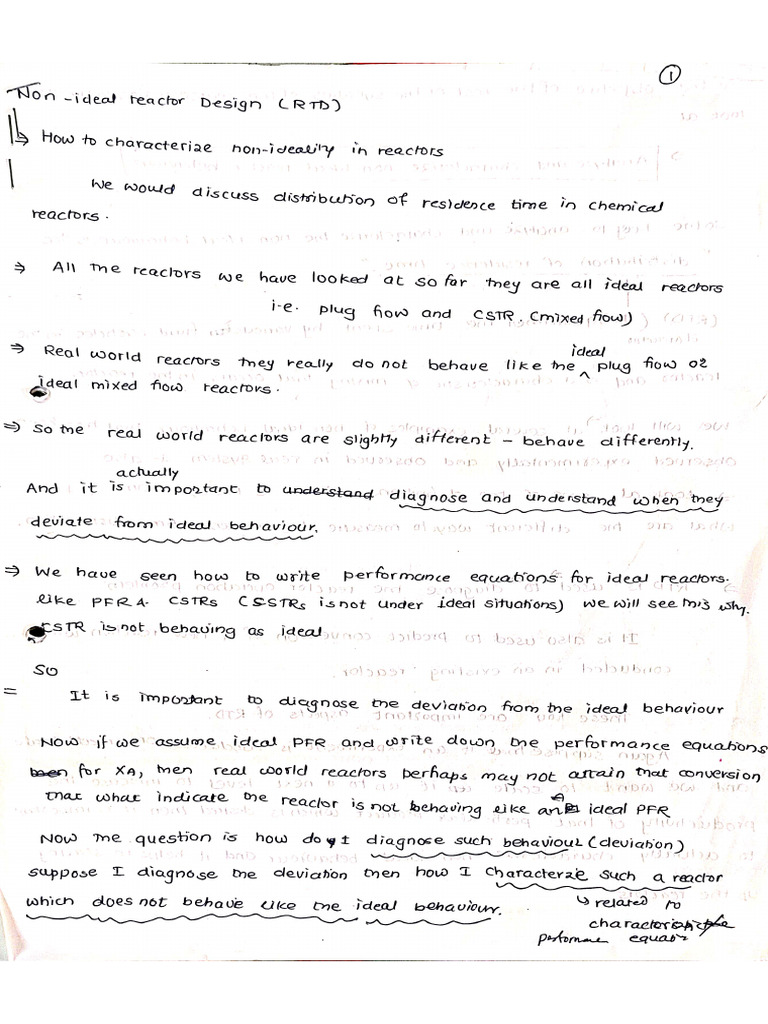 1
Non-ideal reactor Design (RTD)
⇒ How to characterize non-ideality in reactors
We would discuss distribution of residence time in chemical
reactors.
⇒ All the reactors we have looked at so far they are all ideal reactors
i.e. plug flow and CSTR. (mixed flow)
⇒ Real world reactors they really do not behave like the ideal plug flow or
ideal mixed flow reactors.
⇒ So the real world reactors are slightly different - behave differently.
And it is actually important to understand diagnose and understand when they
deviate from ideal behaviour.
⇒ We have seen how to write performance equations for ideal reactors.
like PFR & CSTRs (SSTRs is not under ideal situations) we will see this why.
CSTR is not behaving as ideal
So
= It is important to diagnose the deviation from the ideal behaviour
Now if we assume ideal PFR and write down the performance equations
then for XA, then real world reactors perhaps may not attain that conversion
that what indicate the reactor is not behaving like an ideal PFR
Now the question is how do I diagnose such behaviour (deviation)
suppose I diagnose the deviation then how I Characterzie such a reactor
which does not behave like the ideal behaviour.
related to
performance